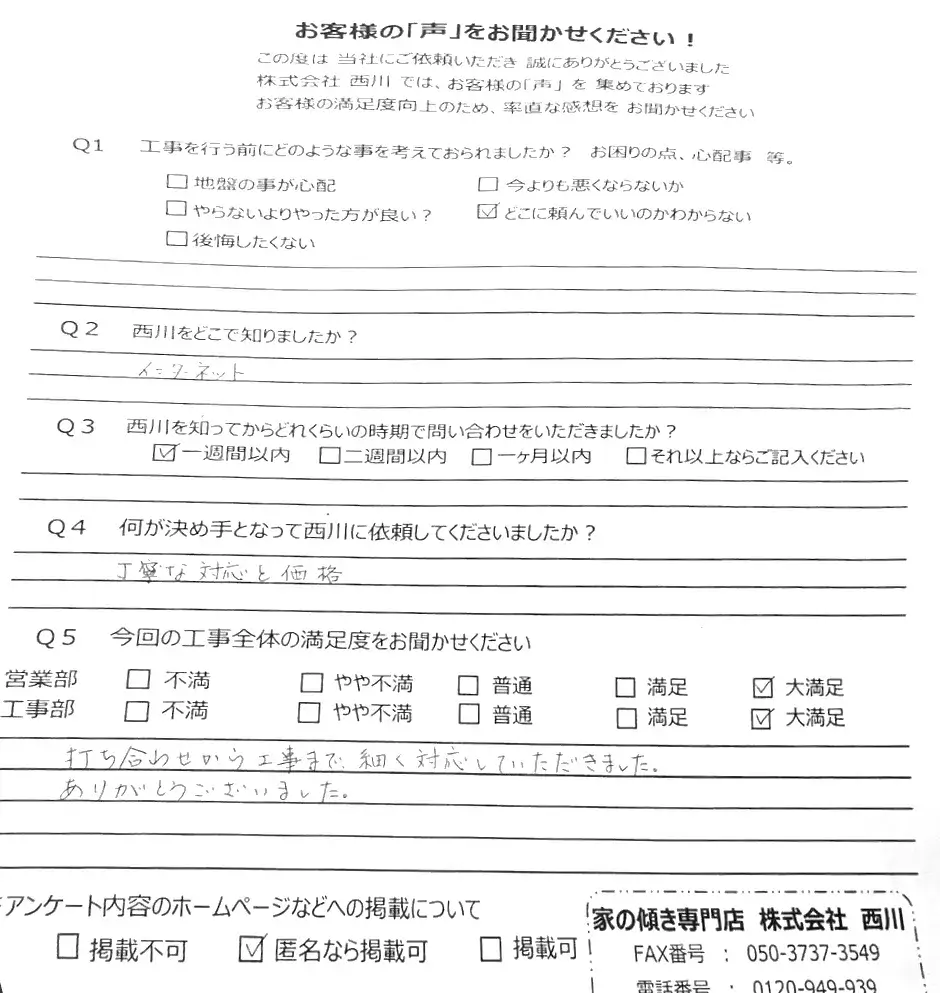 お客様の「声」をお聞かせください！
この度は 当社にご依頼いただき 誠にありがとうございました
株式会社 西川 では、お客様の「声」 を 集めております
お客様の満足度向上のため、率直な感想を お聞かせください
Q1 工事を行う前にどのような事を考えておられましたか？ お困りの点、心配事 等。
□ 地盤の事が心配 □ 今よりも悪くならないか
□ やらないよりやった方が良い？ ☑ どこに頼んでいいのかわからない
□ 後悔したくない
Q2 西川をどこで知りましたか？
インターネット
Q3 西川を知ってからどれくらいの時期で問い合わせをいただきましたか？
☑ 一週間以内 □ 二週間以内 □ 一ヶ月以内 □ それ以上ならご記入ください
Q4 何が決め手となって西川に依頼してくださいましたか？
丁寧な対応と価格
Q5 今回の工事全体の満足度をお聞かせください
営業部 □ 不満 □ やや不満 □ 普通 □ 満足 ☑ 大満足
工事部 □ 不満 □ やや不満 □ 普通 □ 満足 ☑ 大満足
打ち合わせから工事まで、細く対応していただきました。
ありがとうございました。
アンケート内容のホームページなどへの掲載について
□ 掲載不可 ☑ 匿名なら掲載可 □ 掲載可
家の傾き専門店 株式会社 西川
FAX番号 ： 050-3737-3549
電話番号 ： 0120-949-939